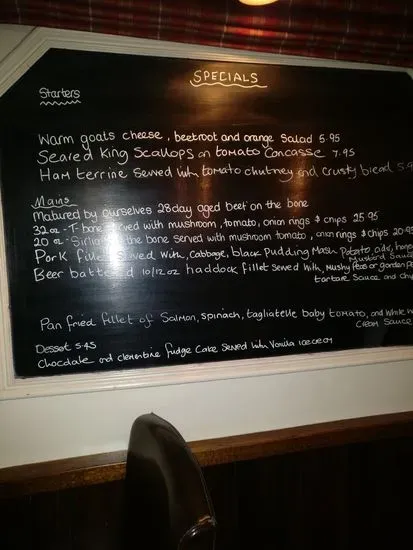 SPECIALS
Starters
Warm goats cheese, beetroot and orange Salad 5.95
Seared King Scallops on tomato Concasse 7.95
Ham terrine served with tomato chutney and crusty bread 5.9
Mains
Matured by ourselves 28 day aged beef on the bone
32 oz - T-bone served with mushroom, tomato, onion rings & chips 25.95
20 oz - Sirloin the bone served with mushroom tomato, onion rings & chips 20.95
Pork fillet served with, cabbage, black pudding Mash potato
Mustard Sauce
Beer battered 10/12 oz haddock fillet served with, mushy peas or garden pe
tartare Sauce and ch
Pan fried fillet of Salmon, spinach, tagliatelle baby tomato, and white w
cream Sauce
Dessert 5.45
Chocolate and clementine fudge Cake served with Vanilla ice cream